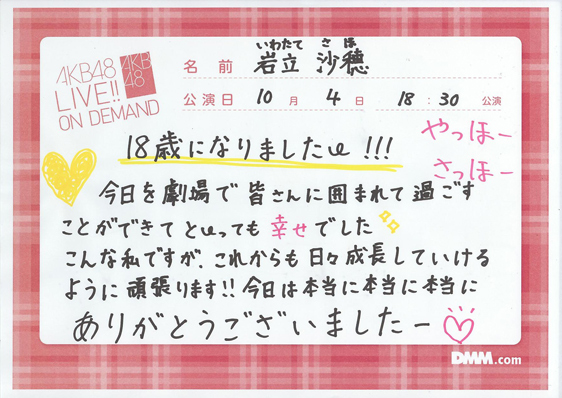 AKB48
LIVE!!
ON DEMAND
AKB
48
いわたて さほ
名前 岩立 沙穂
公演日 10月 4日 18:30 公演
やっほー
さっほー
18歳になりましたuu!!!
今日を劇場で皆さんに囲まれて過ごす
ことができてとぃっても幸せでした
こんな私ですが、これからも日々成長していける
ように頑張ります!!今日は本当に本当に本当に
ありがとうございましたー♡
DMM.com